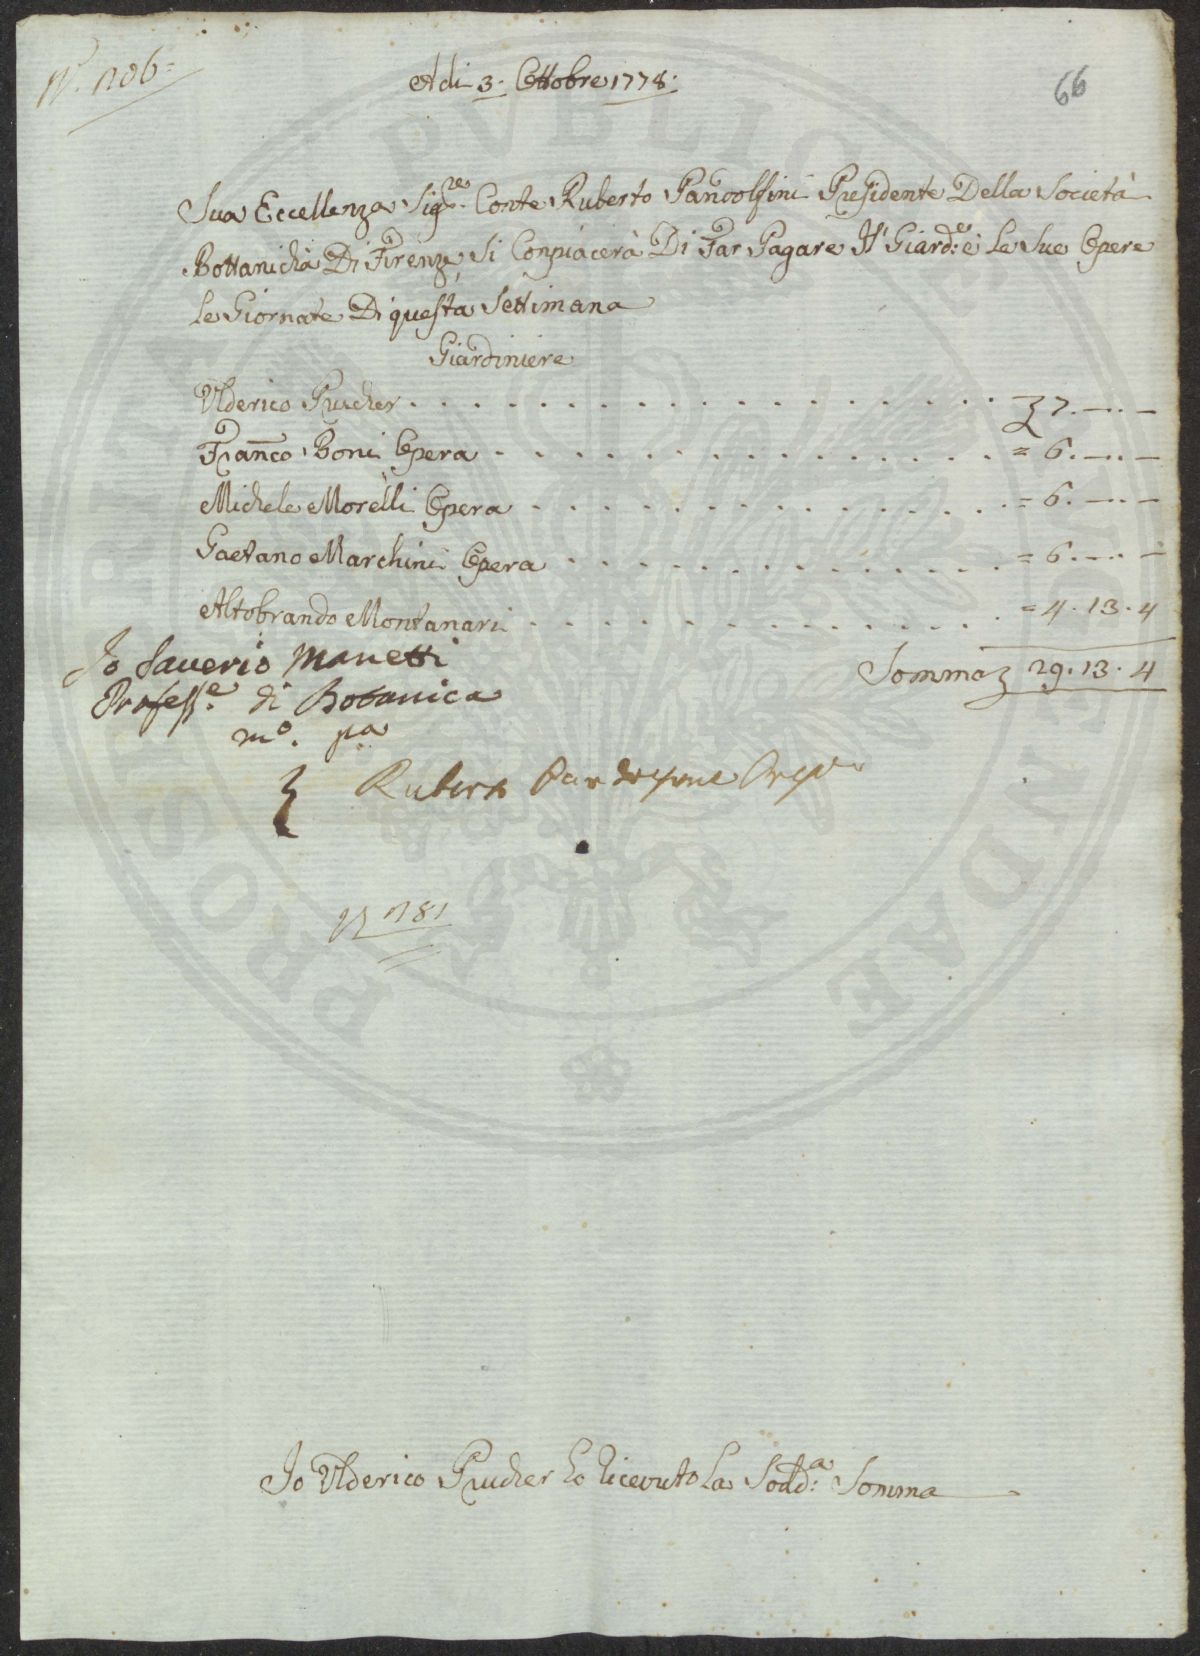 N. 106=
Adi 3. Ottobre 1778.
66
Sua Eccellenza Sig.re Conte Ruberto Pandolfini Presidente Della Società
Bottanicha Di Firenze, Si Conpiacerà Di Far Pagare Il Giard.e è Le Sue Opere
le Giornate Di questa Settimana
Giardiniere
Ulderico Prucher . . . . . . . . . . . . . . . . 7.—.—
Fran̄co Boni Opera . . . . . . . . . . . . . . = 6.—.—
Michele Morelli Opera . . . . . . . . . . . . . = 6.—.—
Gaetano Marchini Opera . . . . . . . . . . . . = 6.—.—
Altobrando Montanari . . . . . . . . . . . . . = 4.13.4
Somma 29.13.4
Io Saverio Manetti
Profess.e di Botanica
m.o pa
Ruberto Pandolfini
781
Io Ulderico Prucher ho ricevuto la Sodd.a Somma
PROSPERITATI PVBLICAE AVGENDAE